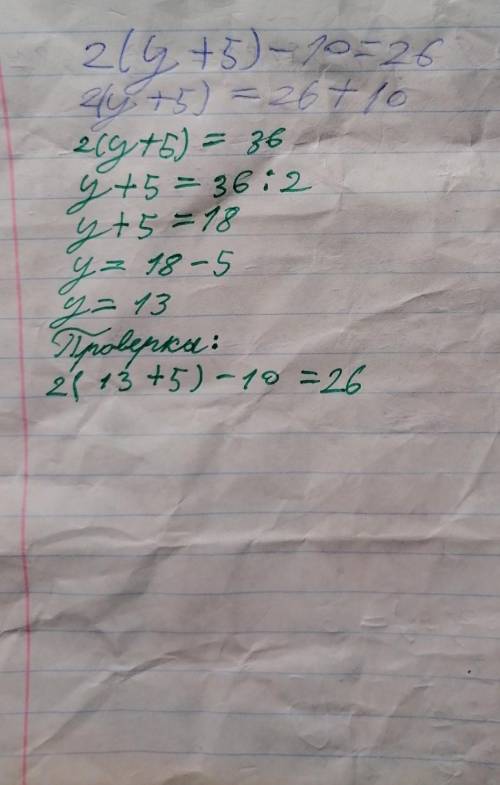 2(y+5)-10=26
2(y+5)=26+10
2(y+5)=36
y+5=36:2
y+5=18
y=18-5
y=13
Проверка:
2(13+5)-10=26